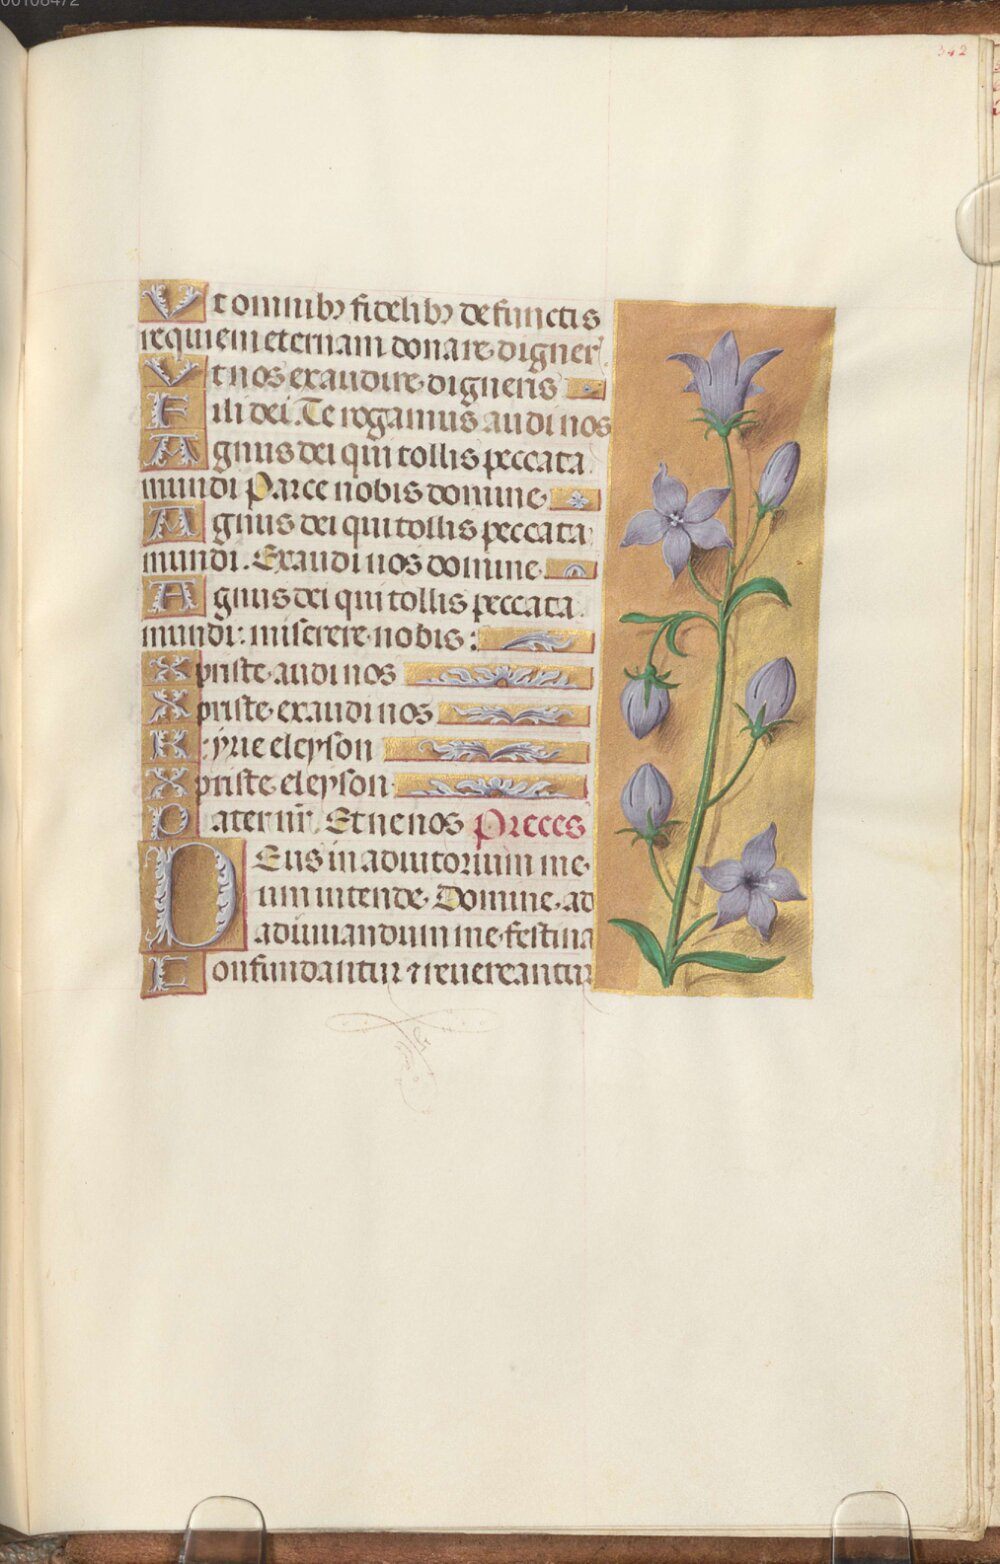 00108472
342
Vt omnibꝫ fidelibꝫ defunctis
requiem eternam donare digner̃.
Vt nos exaudire digneris
Fili dei. Te rogamus audi nos
Agnus dei qui tollis peccata
mundi Parce nobis domine.
Agnus dei qui tollis peccata
mundi. Exaudi nos domine.
Agnus dei qui tollis peccata
mundi: miserere nobis:
Xpriste audi nos
Xpriste exaudi nos
Kyrie eleyson
Xpriste eleyson
Pater nr̃. Et ne nos Preces
Deus in adiutorium me
um intende. Domine ad
adiuuandum me festina
Confundantur ⁊ reuereantur